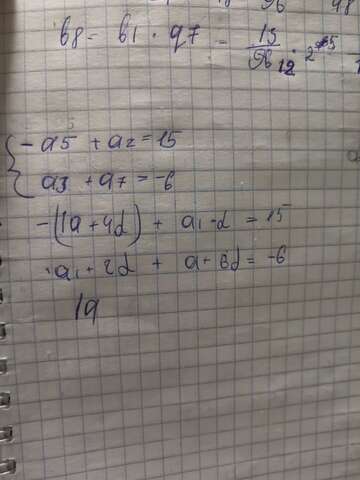 b8 = b1 · q7 = 13/96 12 · 2
- a5 + a2 = 15
a3 + a7 = -6
-(1a + 4d) + a1 - d = 15
a1 + 2d + a + 6d = -6
1a